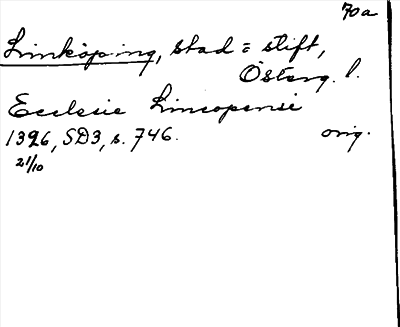 70a
Linköping, stad = stift,
Österg. l.
Ecclesie Lincopensi
1396, SD3, s. 746. orig.
21/10